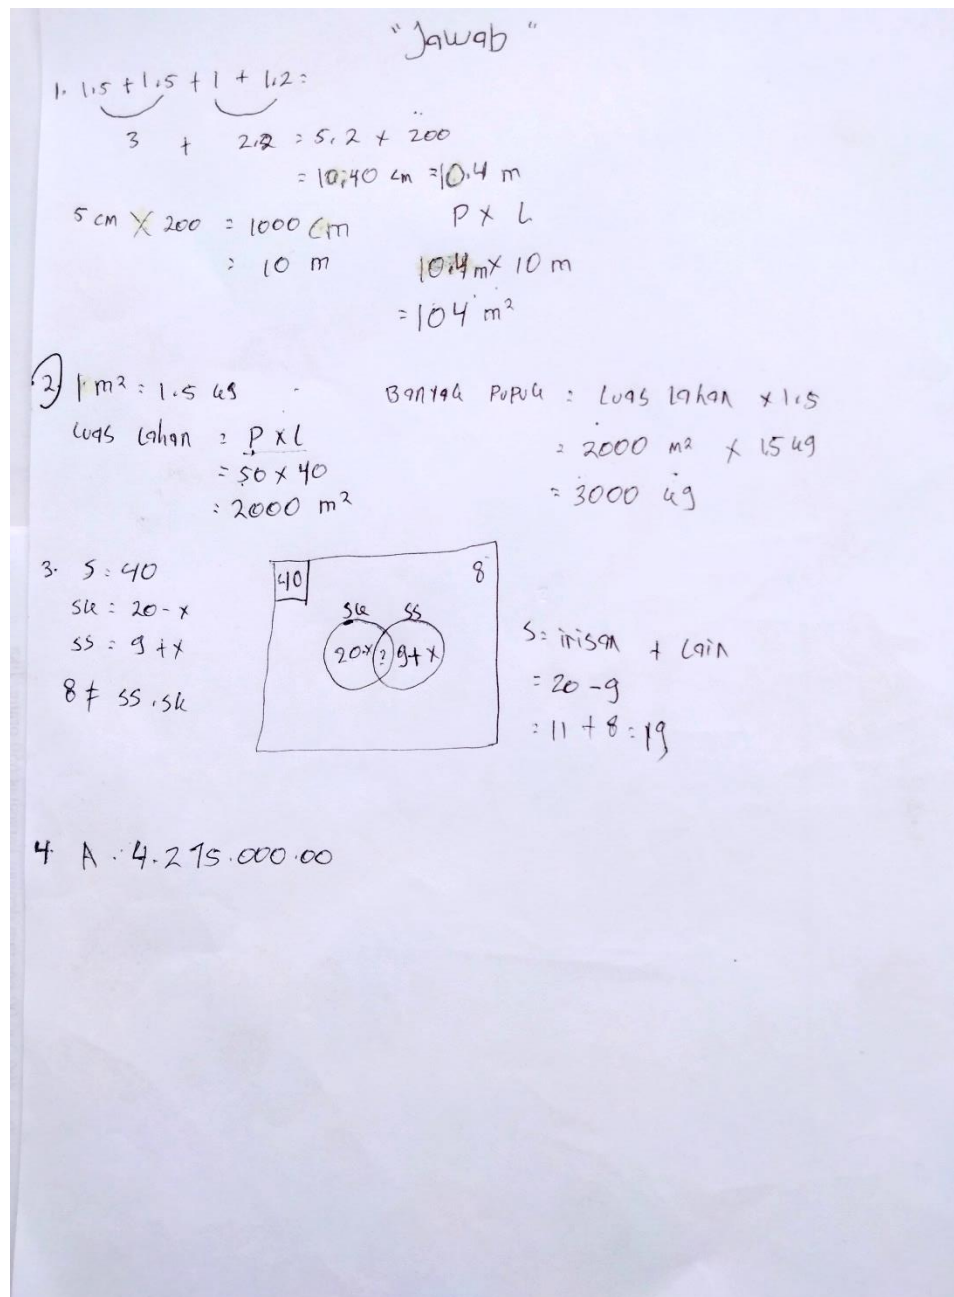 "Jawab"
1. 1.5 + 1.5 + 1 + 1.2 =
3 + 2.2 = 5.2 x 200
= 10.40 cm = 10.4 m
5 cm X 200 = 1000 cm
= 10 m
P x L
10.4 m x 10 m
= 104 m²
2) 1 m² = 1.5 kg
Luas lahan = P x L
= 50 x 40
= 2000 m²
Banyak Pupuk = Luas lahan x 1.5
= 2000 m² x 15 kg
= 3000 kg
3. S = 40
Sk = 20 - x
SS = 9 + x
8 ≠ SS . Sk
40
8
Sk SS
20-x ? 9+x
S = irisan + lain
= 20 - 9
= 11 + 8 = 19
4 A. 4.275.000.00